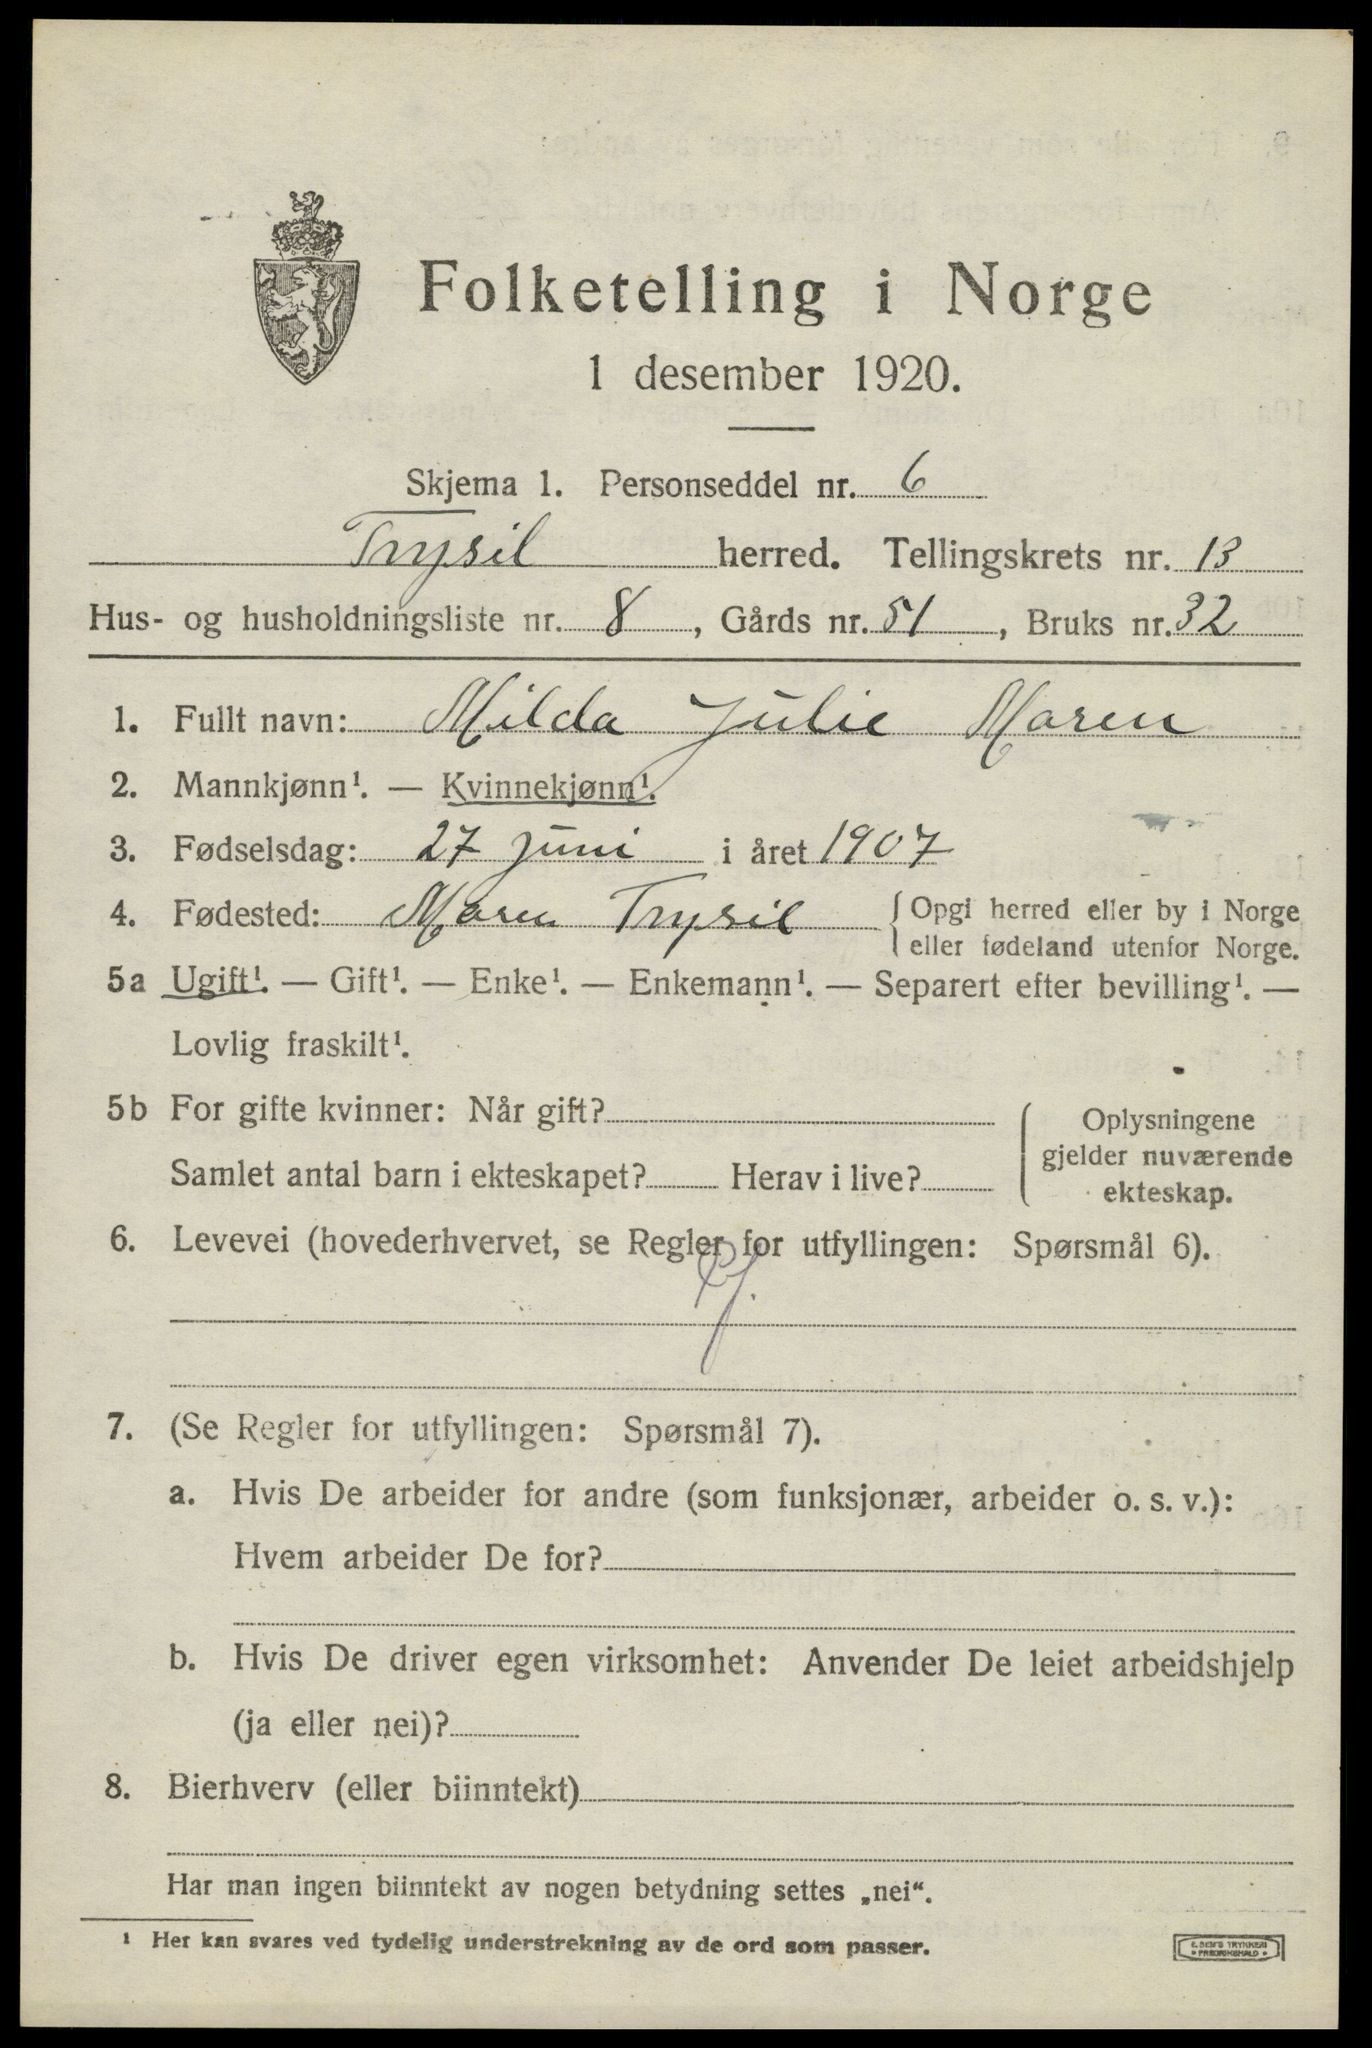 Folketelling i Norge
1 desember 1920.
Skjema 1. Personseddel nr. 6
Trysil herred. Tellingskrets nr. 13
Hus- og husholdningsliste nr. 8, Gårds nr. 51, Bruks nr. 32
1. Fullt navn: Milda Julie Moren
2. Mannkjønn¹. — Kvinnekjønn¹.
3. Fødselsdag: 27 juni i året 1907
4. Fødested: Moren Trysil {Opgi herred eller by i Norge
eller fødeland utenfor Norge.
5a Ugift¹. — Gift¹. — Enke¹. — Enkemann¹. — Separert efter bevilling¹. —
Lovlig fraskilt¹.
5b For gifte kvinner: Når gift?
Samlet antal barn i ekteskapet? Herav i live?
Oplysningene
gjelder nuværende
ekteskap.
6. Levevei (hovederhvervet, se Regler for utfyllingen: Spørsmål 6).
7. (Se Regler for utfyllingen: Spørsmål 7).
a. Hvis De arbeider for andre (som funksjonær, arbeider o. s. v.):
Hvem arbeider De for?
b. Hvis De driver egen virksomhet: Anvender De leiet arbeidshjelp
(ja eller nei)?
8. Bierhverv (eller biinntekt)
Har man ingen biinntekt av nogen betydning settes „nei“.
¹ Her kan svares ved tydelig understrekning av de ord som passer.
E. SEM'S TRYKKERI
• FREDRIKSHALD •